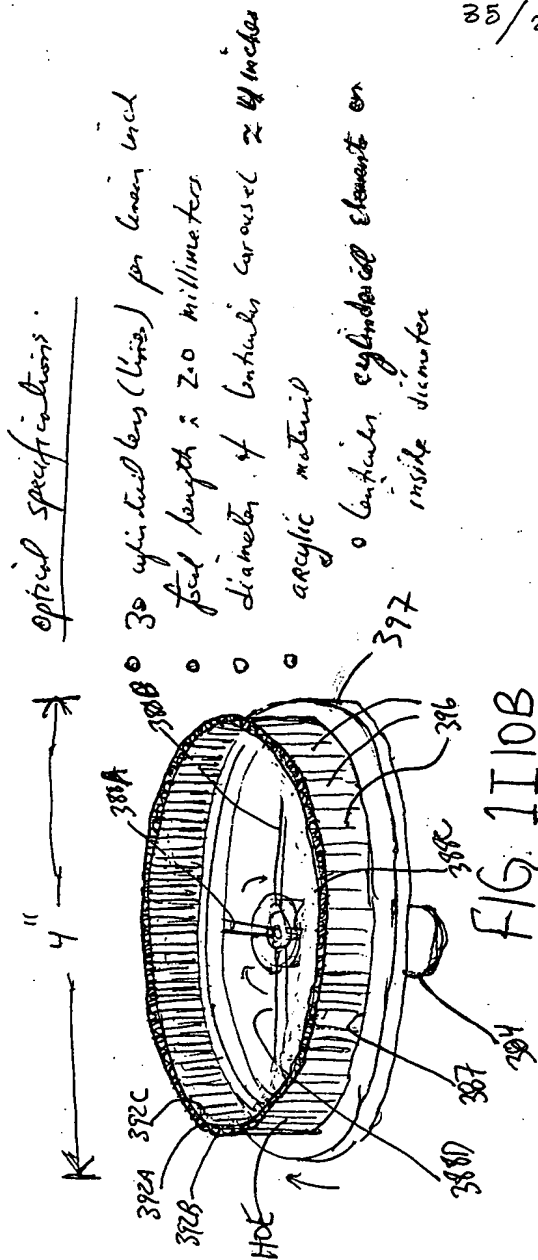 optical specifications:
o 30 cylindrical lens (lines) per linear inch
o focal length ≈ 2.0 millimeters
o diameter of lenticular carousel ≈ 4 inches
o arcylic material
o lenticular cylindrical elements on
inside diameter
4"
388A
388B
392C
392A
392B
HOE
397
396
388C
388D
387
384
FIG. 1I10B